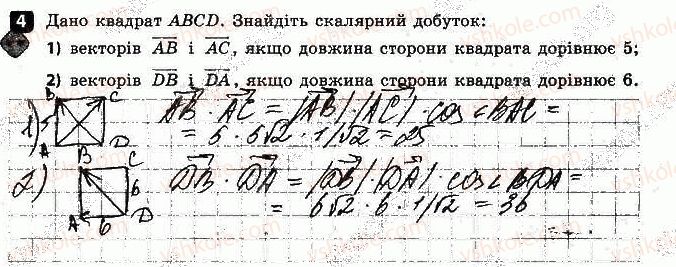 4 Дано квадрат ABCD. Знайдіть скалярний добуток:
1) векторів AB і AC, якщо довжина сторони квадрата дорівнює 5;
2) векторів DB і DA, якщо довжина сторони квадрата дорівнює 6.
1) B C 5 A D AB · AC = |AB| · |AC| · cos<BAC =
= 5 · 5√2 · 1/√2 = 25
2) B C 6 A 6 D DB · DA = |DB| · |DA| · cos<BDA =
= 6√2 · 6 · 1/√2 = 36